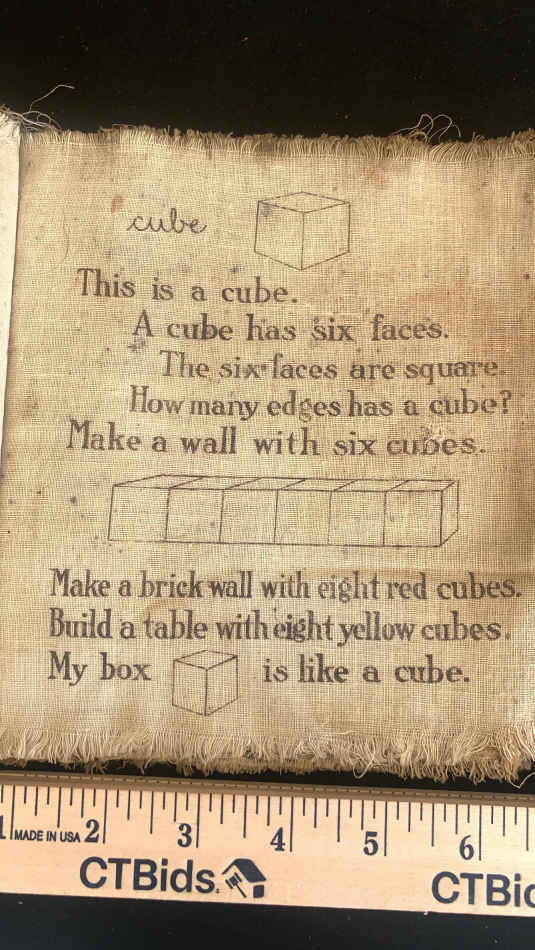 cube
This is a cube.
A cube has six faces.
The six faces are square.
How many edges has a cube?
Make a wall with six cubes.
Make a brick wall with eight red cubes.
Build a table with eight yellow cubes.
My box is like a cube.
1 MADE IN USA 2 3 4 5 6
CTBids. CTBi